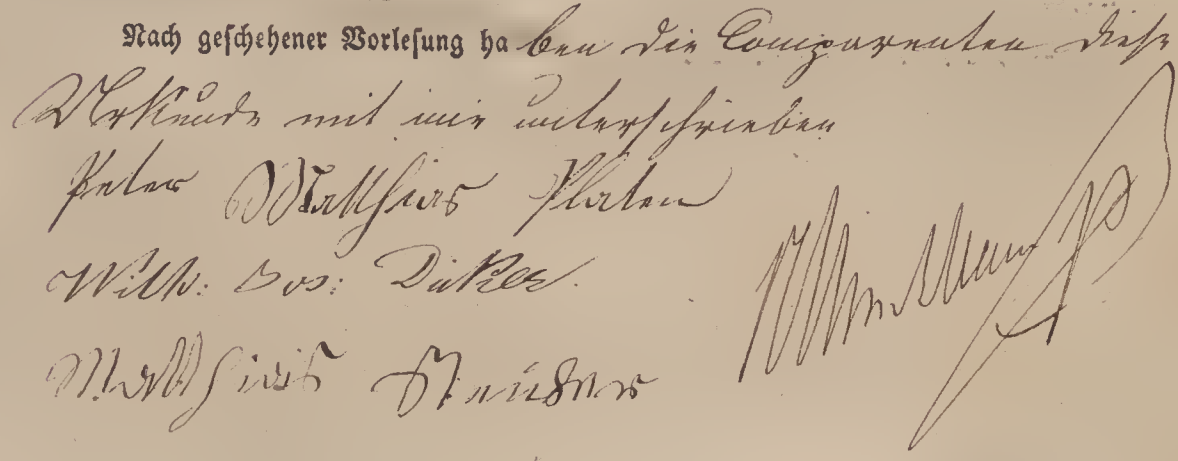 Nach geschehener Vorlesung haben die Comparenten diese
Urkunde mit mir unterschrieben
Peter Matthias Platen
Wilh: Jos: Dicker
Matthias